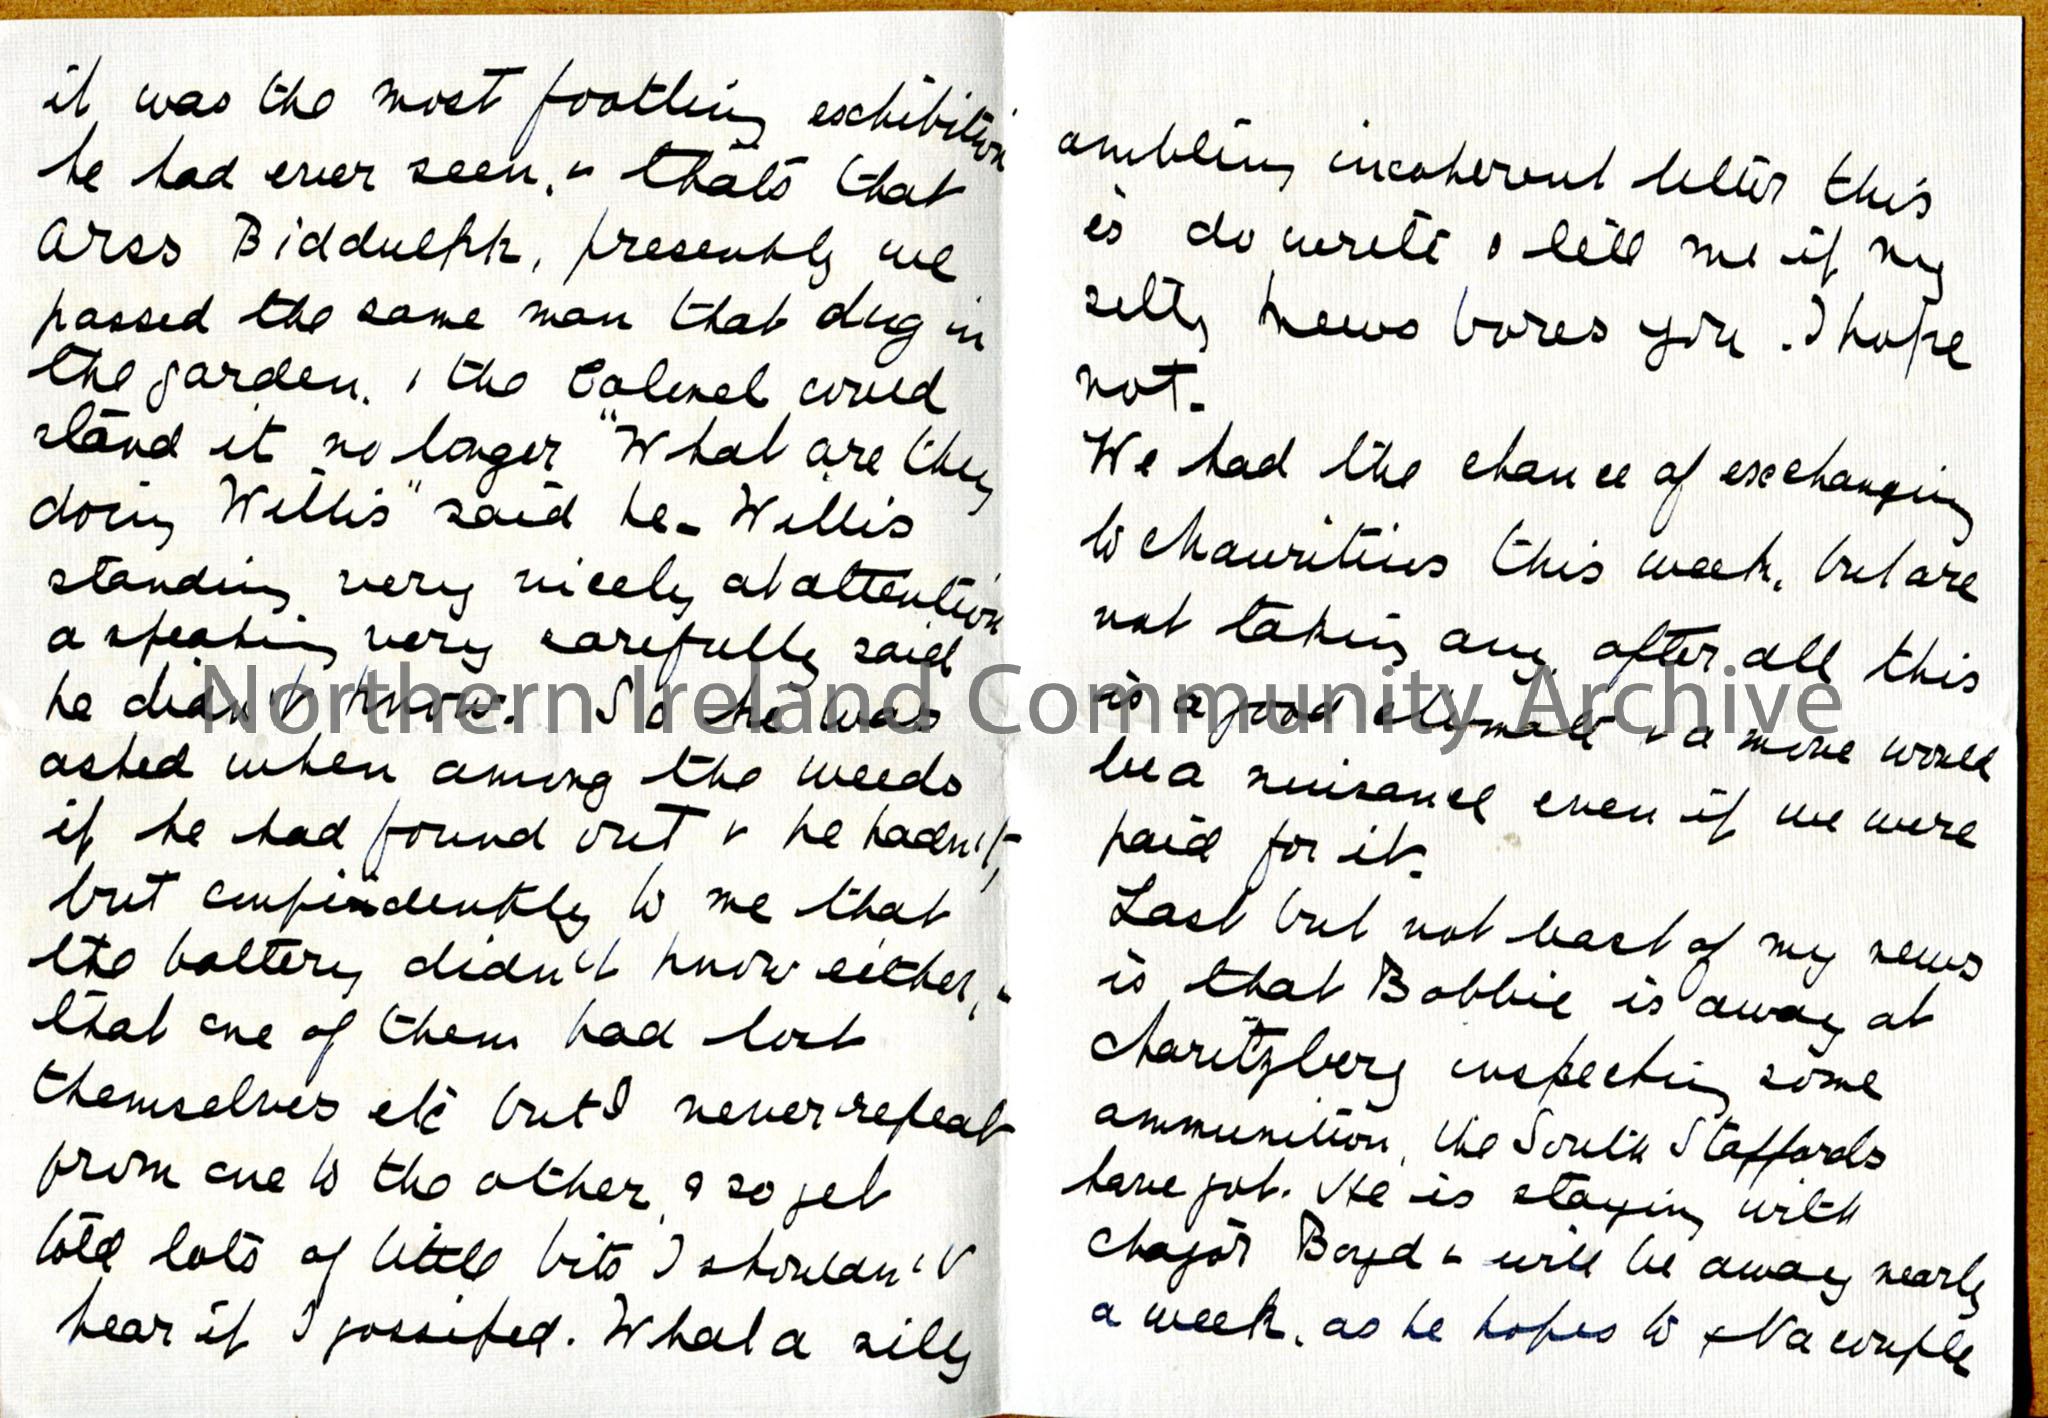 it was the most footling exhibition
he had ever seen. & thats that
arss Biddulph, presently we
passed the same man that dug in
the garden. & the Colonel could
stand it no longer "What are they
doing Willis" said he - Willis
standing very nicely at attention
a speaking very carefully said
he didn't know. So he was
asked when among the weeds
if he had found out & he hadn't,
but confidently to me that
the battery didn't know either, &
that one of them had lost
themselves etc but I never repeat
from one to the other, & so get
told lots of little bits I shouldn't
hear if I gossiped. What a silly
ambling incoherent letter this
is do write & tell me if my
silly news bores you. I hope
not.
We had the chance of exchanging
to Mauritius this week, but are
not taking any, after all this
is a good clymate & a move would
be a nuisance even if we were
paid for it.
Last but not least of my news
is that Bobbie is away at
Maritzberg inspecting some
ammunition, the South Staffords
have got. He is staying with
Major Boyd & will be away nearly
a week, as he hopes to a couple
Northern Ireland Community Archive